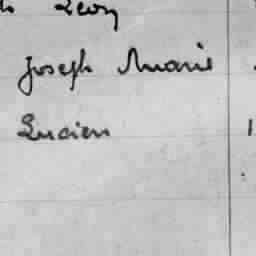 Léon
Joseph Marie
Lucien